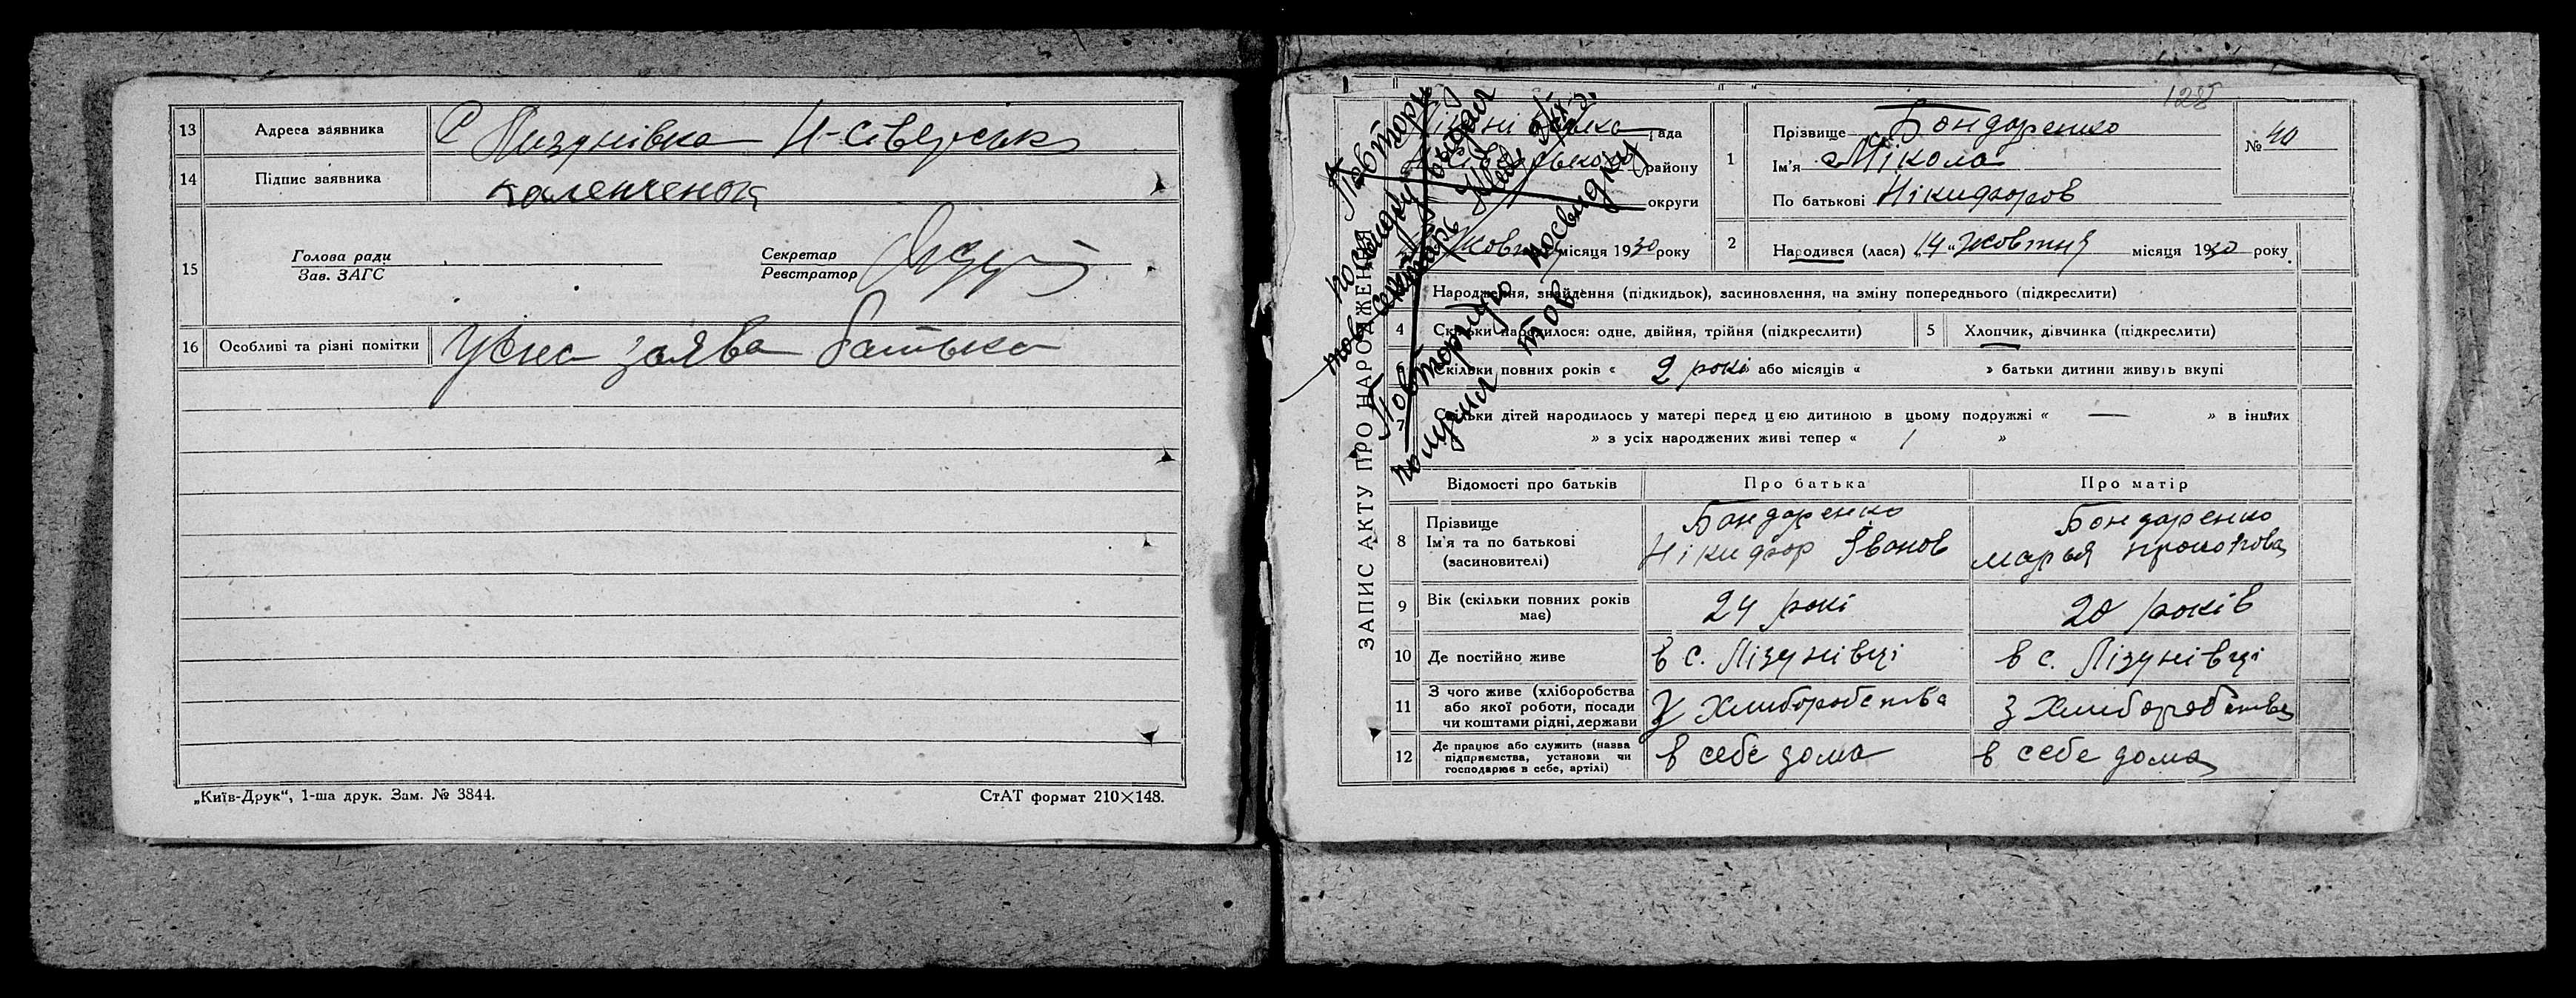 13 Адреса заявника С Лизунівка Н-Сіверськ
14 Підпис заявника
15 Голова ради Секретар
Зав. ЗАГС Реєстратор
16 Особливі та різні помітки Усна заява батька
„Київ-Друк“, 1-ша друк. Зам. № 3844. СтАТ формат 210×148.
128
ЗАПИС АКТУ ПРО НАРОДЖЕННЯ
Повторну
посвидку выдал
тов секретарь
Повторную посвидку
получил тов
рада
району
округи
Жовтня місяця 1930 року
1 Прізвище Бондаренко
Ім'я Мікола
По батькові Нікифоров
№ 40
2 Народився (лася) „14 „ Жовтня місяця 1930 року
Народження, знайдення (підкидьок), засиновлення, на зміну попереднього (підкреслити)
4 Скільки народилося: одне, двійня, трійня (підкреслити) 5 Хлопчик, дівчинка (підкреслити)
Скільки повних років « 2 рокі або місяців « » батьки дитини живуть вкупі
7 Скільки дітей народилось у матері перед цією дитиною в цьому подружжі « — » в інших
» з усіх народжених живі тепер « 1 »
Відомості про батьків Про батька Про матір
8 Прізвище Бондаренко Бондаренко
Ім'я та по батькові Нікифор Іванов Марья Прокопова
(засиновителі)
9 Вік (скільки повних років має) 24 рокі 20 років
10 Де постійно живе в с. Лізунівці в с. Лізунівці
11 З чого живе (хліборобства З Хлиборобства З Хлиборобства
або якої роботи, посади
чи коштами рідні, держави
12 Де працює або служить (назва в себе дома в себе дома
підприємства, установи чи
господарює в себе, артілі)